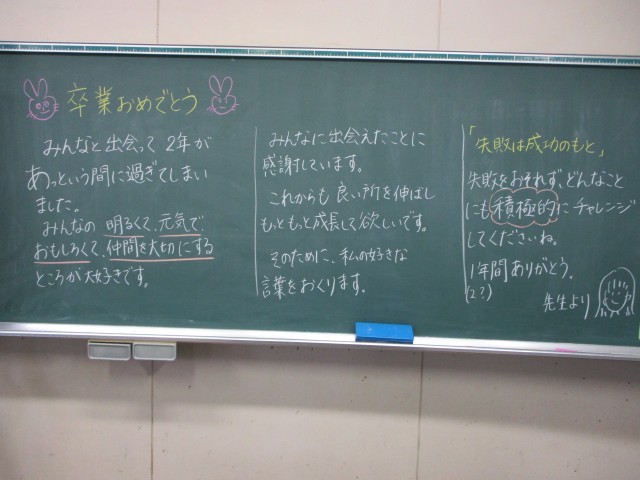 卒業おめでとう
みんなと出会って2年が
あっという間に過ぎてしまい
ました。
みんなの明るくて、元気で
おもしろくて、仲間を大切にする
ところが大好きです。
みんなに出会えたことに
感謝しています。
これからも良い所を伸ばし
もっともっと成長して欲しいです。
そのために、私の好きな
言葉をおくります。
「失敗は成功のもと」
失敗をおそれず、どんなこと
にも積極的にチャレンジ
してくださいね。
1年間ありがとう。
(2?)
先生より